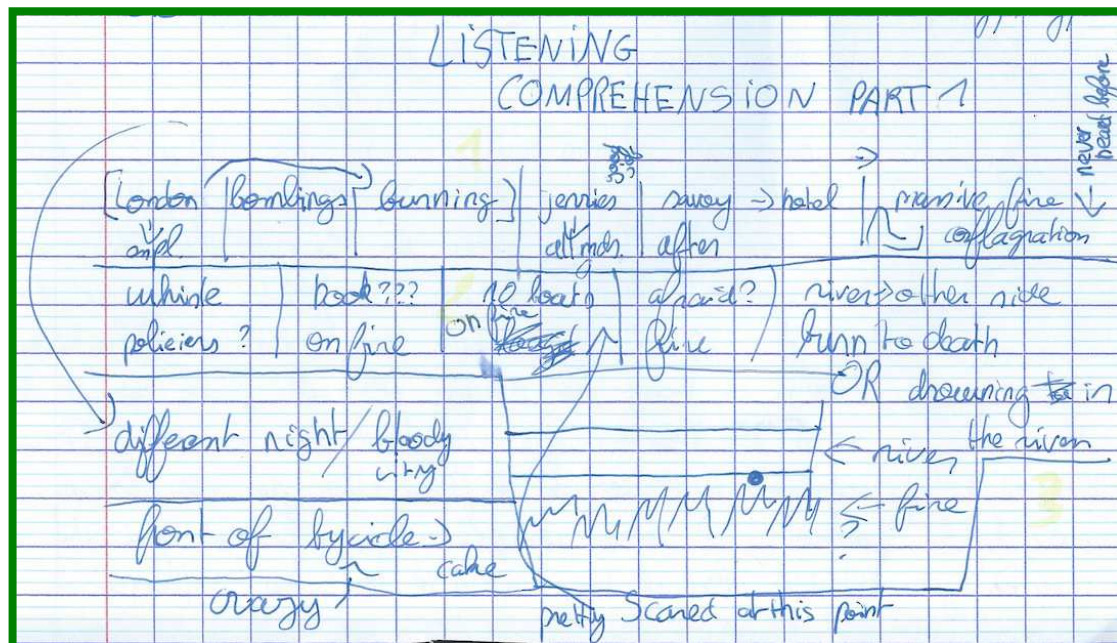 LISTENING
COMPREHENSION PART 1
never heard before
[London | bombings | burning] | jerries | savoy → hotel | massive fire
expl. after conflagration
whisle | book??? | 10 boats | afraid? | river → other side
policiers ? on fire on fire fire burn to death
OR drowning in
the river
different night / bloody
← river
← fire
?
front of bycicle →
cake
crazy
pretty scared at this point